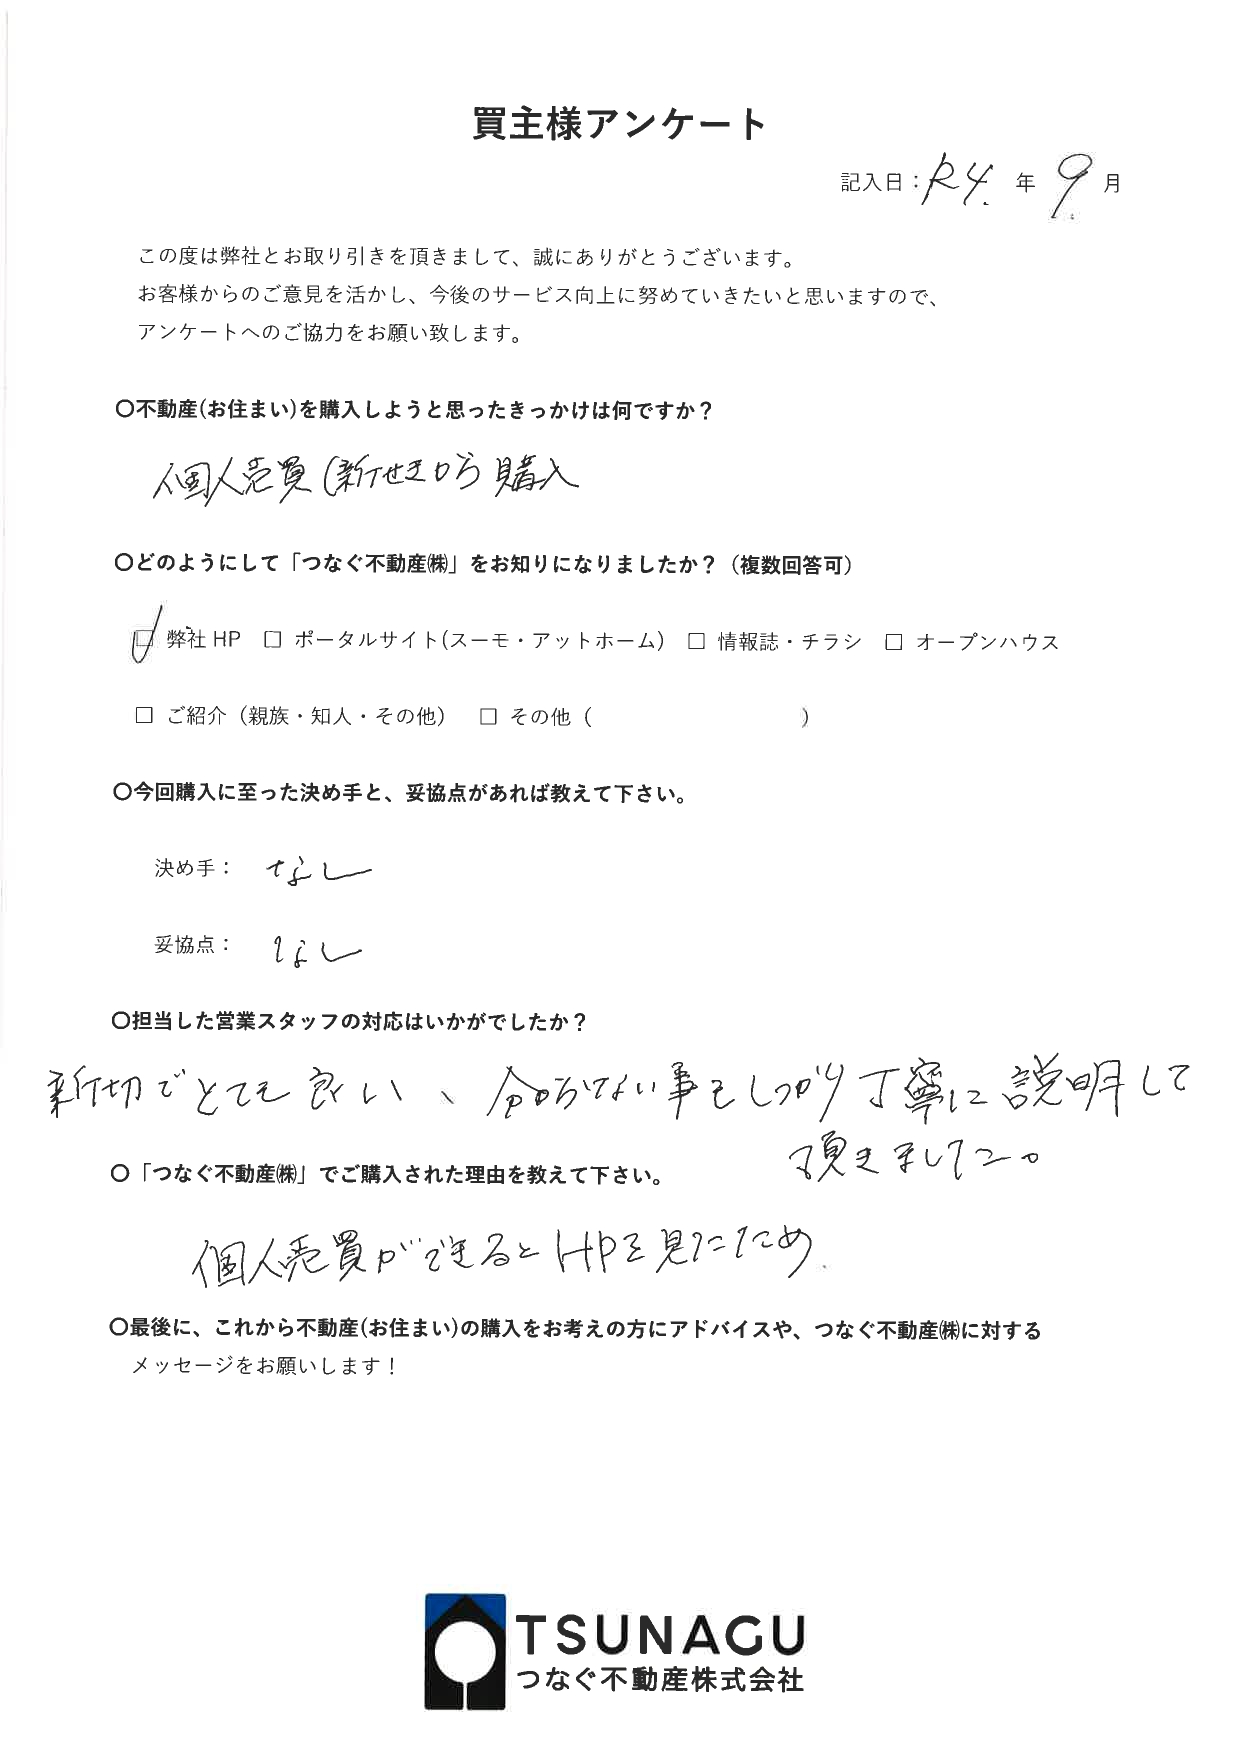 買主様アンケート
記入日：R4. 年 9. 月
この度は弊社とお取り引きを頂きまして、誠にありがとうございます。
お客様からのご意見を活かし、今後のサービス向上に努めていきたいと思いますので、
アンケートへのご協力をお願い致します。
〇不動産(お住まい)を購入しようと思ったきっかけは何ですか？
個人売買（新せきから購入
〇どのようにして「つなぐ不動産㈱」をお知りになりましたか？（複数回答可）
☑ 弊社 HP □ ポータルサイト(スーモ・アットホーム) □ 情報誌・チラシ □ オープンハウス
□ ご紹介（親族・知人・その他） □ その他（ ）
〇今回購入に至った決め手と、妥協点があれば教えて下さい。
決め手： なし
妥協点： なし
〇担当した営業スタッフの対応はいかがでしたか？
新切でとても良い、分からない事もしっかり丁寧に説明して
頂きました。
〇「つなぐ不動産㈱」でご購入された理由を教えて下さい。
個人売買ができるとHPを見たため.
〇最後に、これから不動産(お住まい)の購入をお考えの方にアドバイスや、つなぐ不動産㈱に対する
メッセージをお願いします！
TSUNAGU
つなぐ不動産株式会社